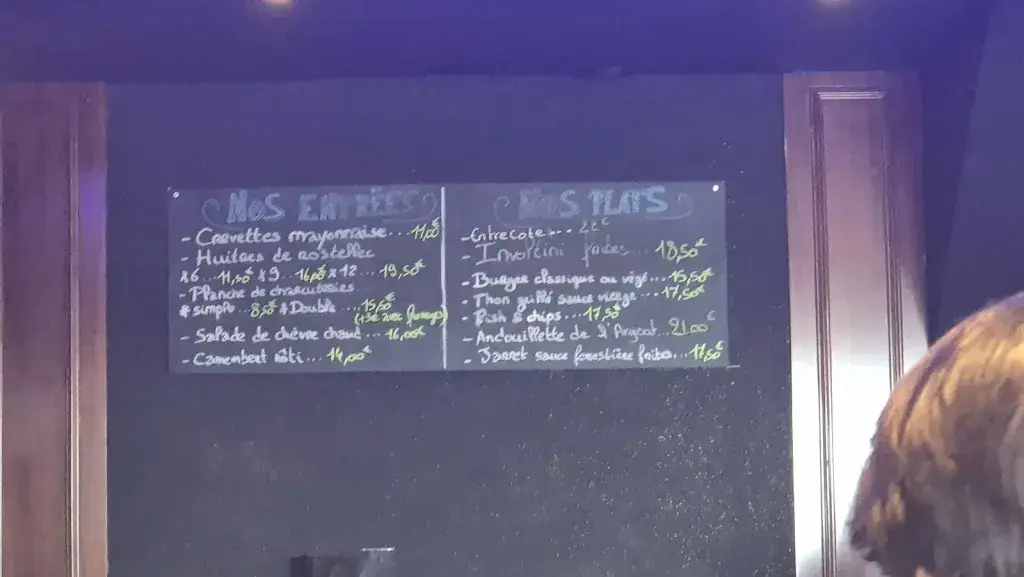 NOS ENTRÉES
- Crevettes mayonnaise... 11,00€
- Huitres de
x6... 11,50€ x9... 16,00€ x12... 19,50€
- Planche de charcuteries
* simple... 8,50€ * Double... 15,50€
(+3€ avec fromage)
- Salade de chèvre chaud... 16,00€
- Camembert rôti... 14,00€
NOS PLATS
- Entrecote... 22€
- Involtini frites... 18,50€
- Burger classique ou végé... 15,50€
- Thon grillé sauce vierge... 17,50€
- Fish & chips... 17,50€
- Andouillette de 21.00€
- Jarret sauce forestière frites... 17,50€